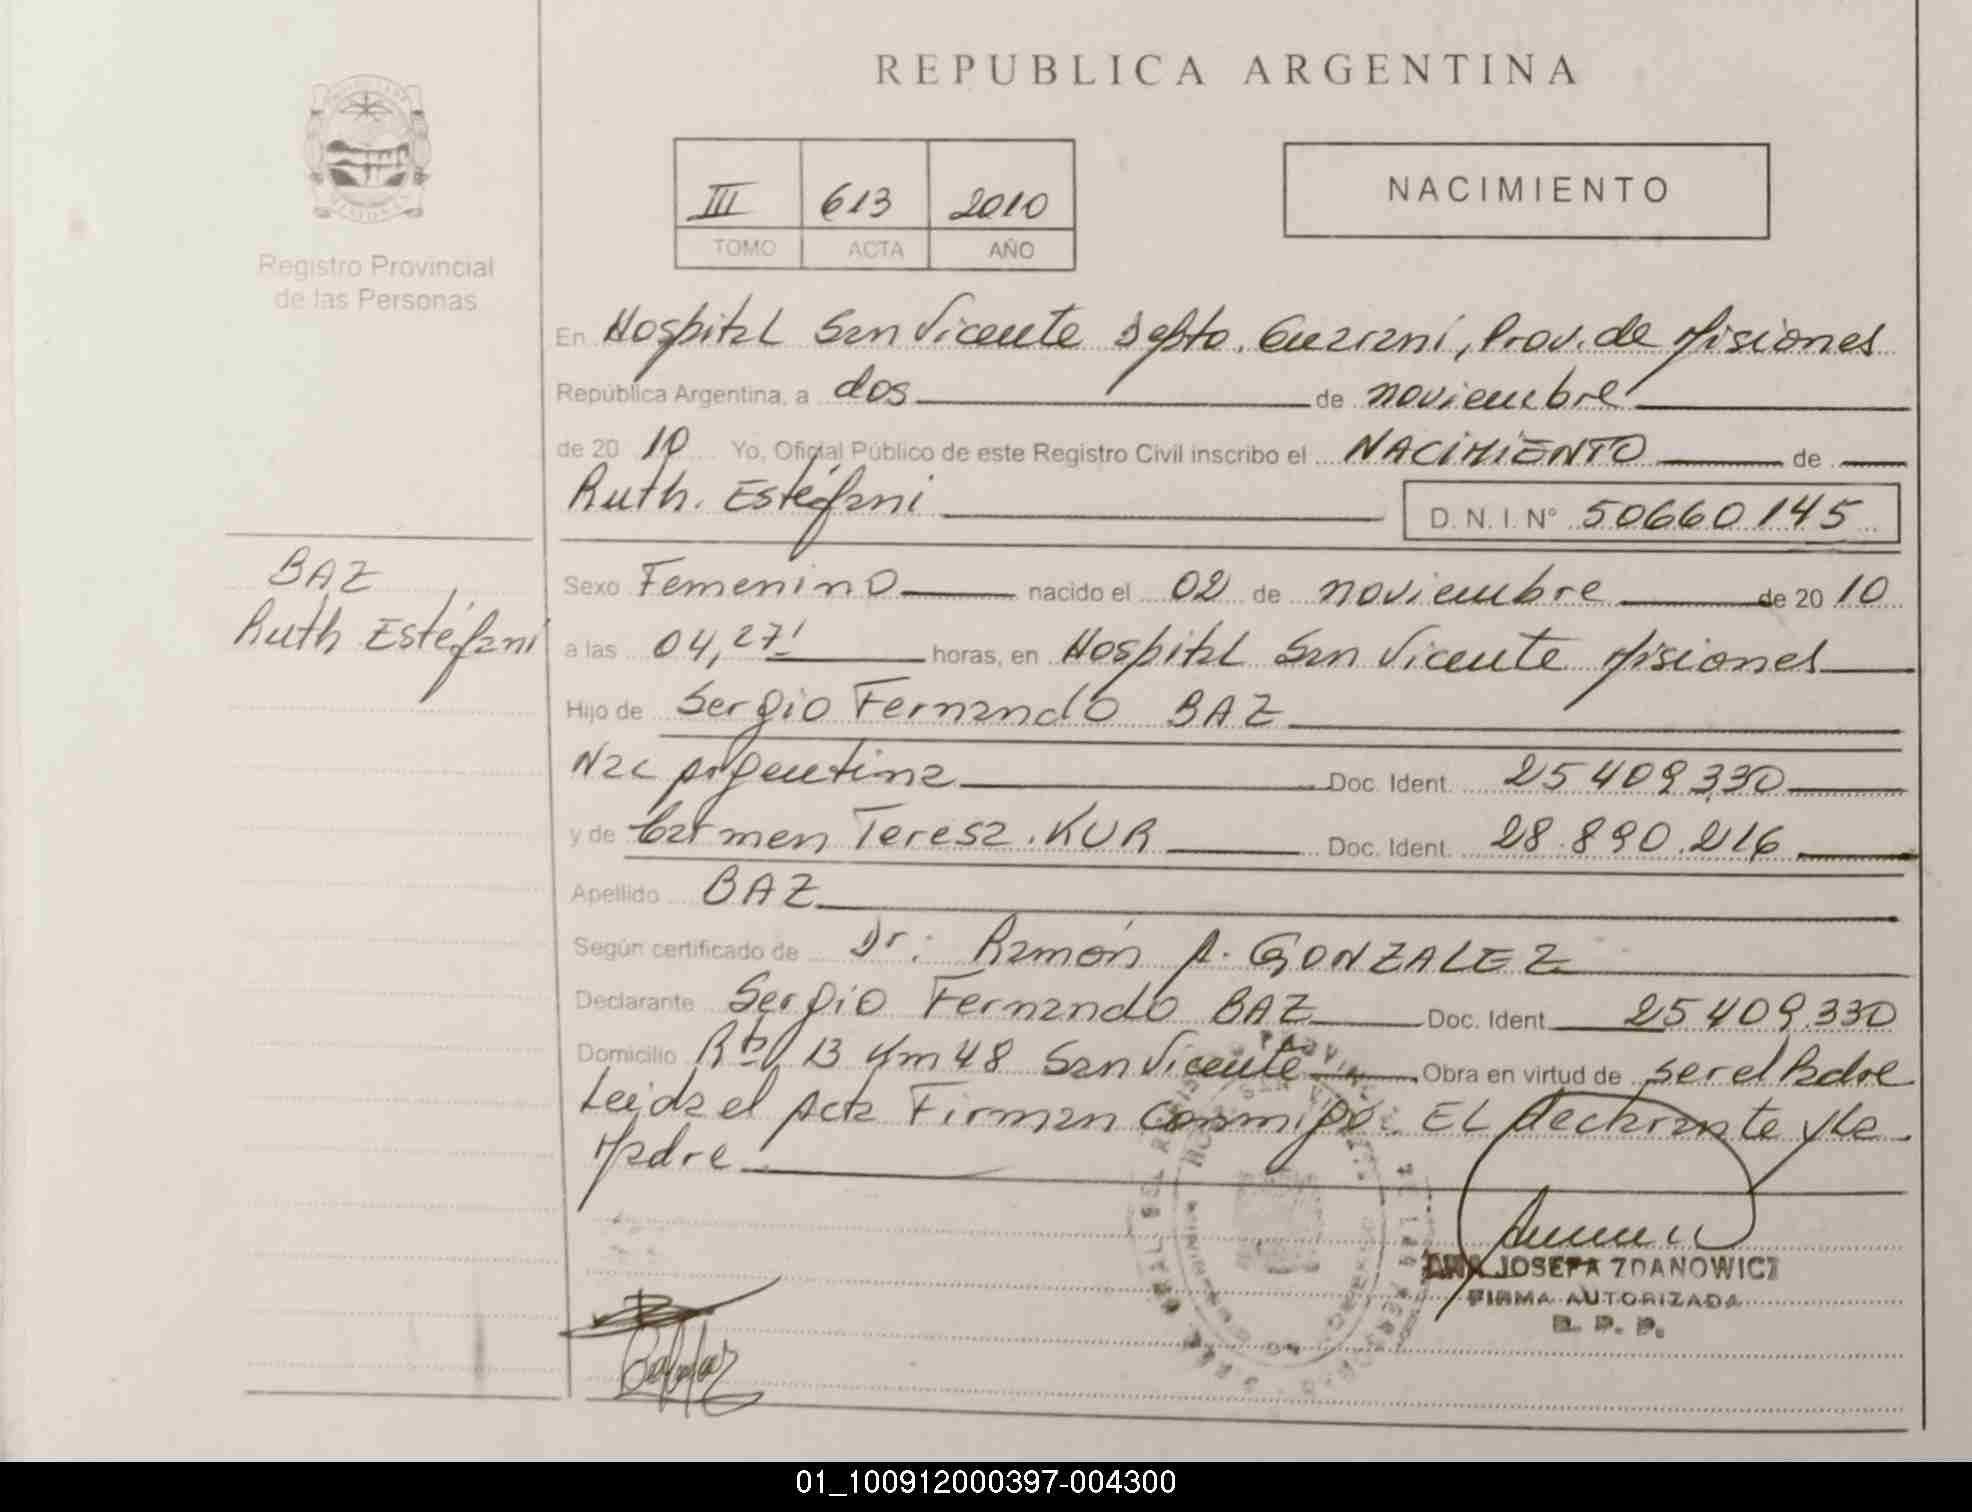 REPUBLICA ARGENTINA
III 613 2010
TOMO ACTA AÑO
NACIMIENTO
Registro Provincial
de las Personas
En Hospital San Vicente Depto. Guaraní, Prov. de Misiones
República Argentina, a dos de noviembre
de 20 10 Yo, Oficial Público de este Registro Civil inscribo el NACIMIENTO de
Ruth. Estéfani
D. N. I. Nº 50660145
BAZ
Ruth Estéfani
Sexo Femenino nacido el 02 de noviembre de 20 10
a las 04,27' horas, en Hospital San Vicente Misiones
Hijo de Sergio Fernando BAZ
Nac Argentina Doc. Ident. 25409330
y de Carmen Teresa. KUR Doc. Ident. 28.890.216
Apellido BAZ
Según certificado de Dr: Ramón A. GONZALEZ
Declarante Sergio Fernando BAZ Doc. Ident 25409.330
Domicilio Rta 13 Km 48 San Vicente Obra en virtud de ser el Padre
Leida el Acta Firman Conmigo. EL declarante y la
Madre
ANA JOSEFA ZDANOWICZ
FIRMA AUTORIZADA
R. P. P.
01_100912000397-004300